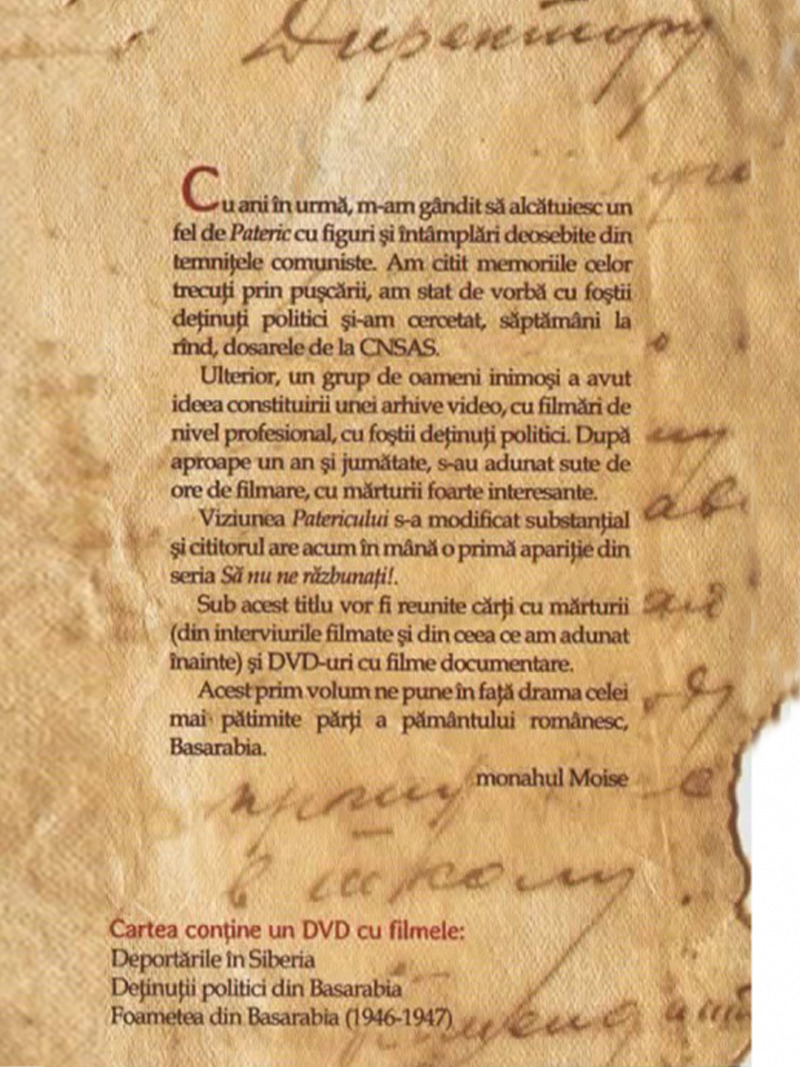 Директору
Cu ani în urmă, m-am gândit să alcătuiesc un
fel de Pateric cu figuri şi întâmplări deosebite din
temniţele comuniste. Am citit memoriile celor
trecuţi prin puşcării, am stat de vorbă cu foştii
deţinuţi politici şi-am cercetat, săptămâni la
rînd, dosarele de la CNSAS.
Ulterior, un grup de oameni inimoşi a avut
ideea constituirii unei arhive video, cu filmări de
nivel profesional, cu foştii deţinuţi politici. După
aproape un an şi jumătate, s-au adunat sute de
ore de filmare, cu mărturii foarte interesante.
Viziunea Patericului s-a modificat substanţial
şi cititorul are acum în mână o primă apariţie din
seria Să nu ne răzbunaţi!.
Sub acest titlu vor fi reunite cărţi cu mărturii
(din interviurile filmate şi din ceea ce am adunat
înainte) şi DVD-uri cu filme documentare.
Acest prim volum ne pune în faţă drama celei
mai pătimite părţi a pământului românesc,
Basarabia.
monahul Moise
прошу
в школу
Cartea conţine un DVD cu filmele:
Deportările în Siberia
Deţinuţii politici din Basarabia
Foametea din Basarabia (1946-1947)